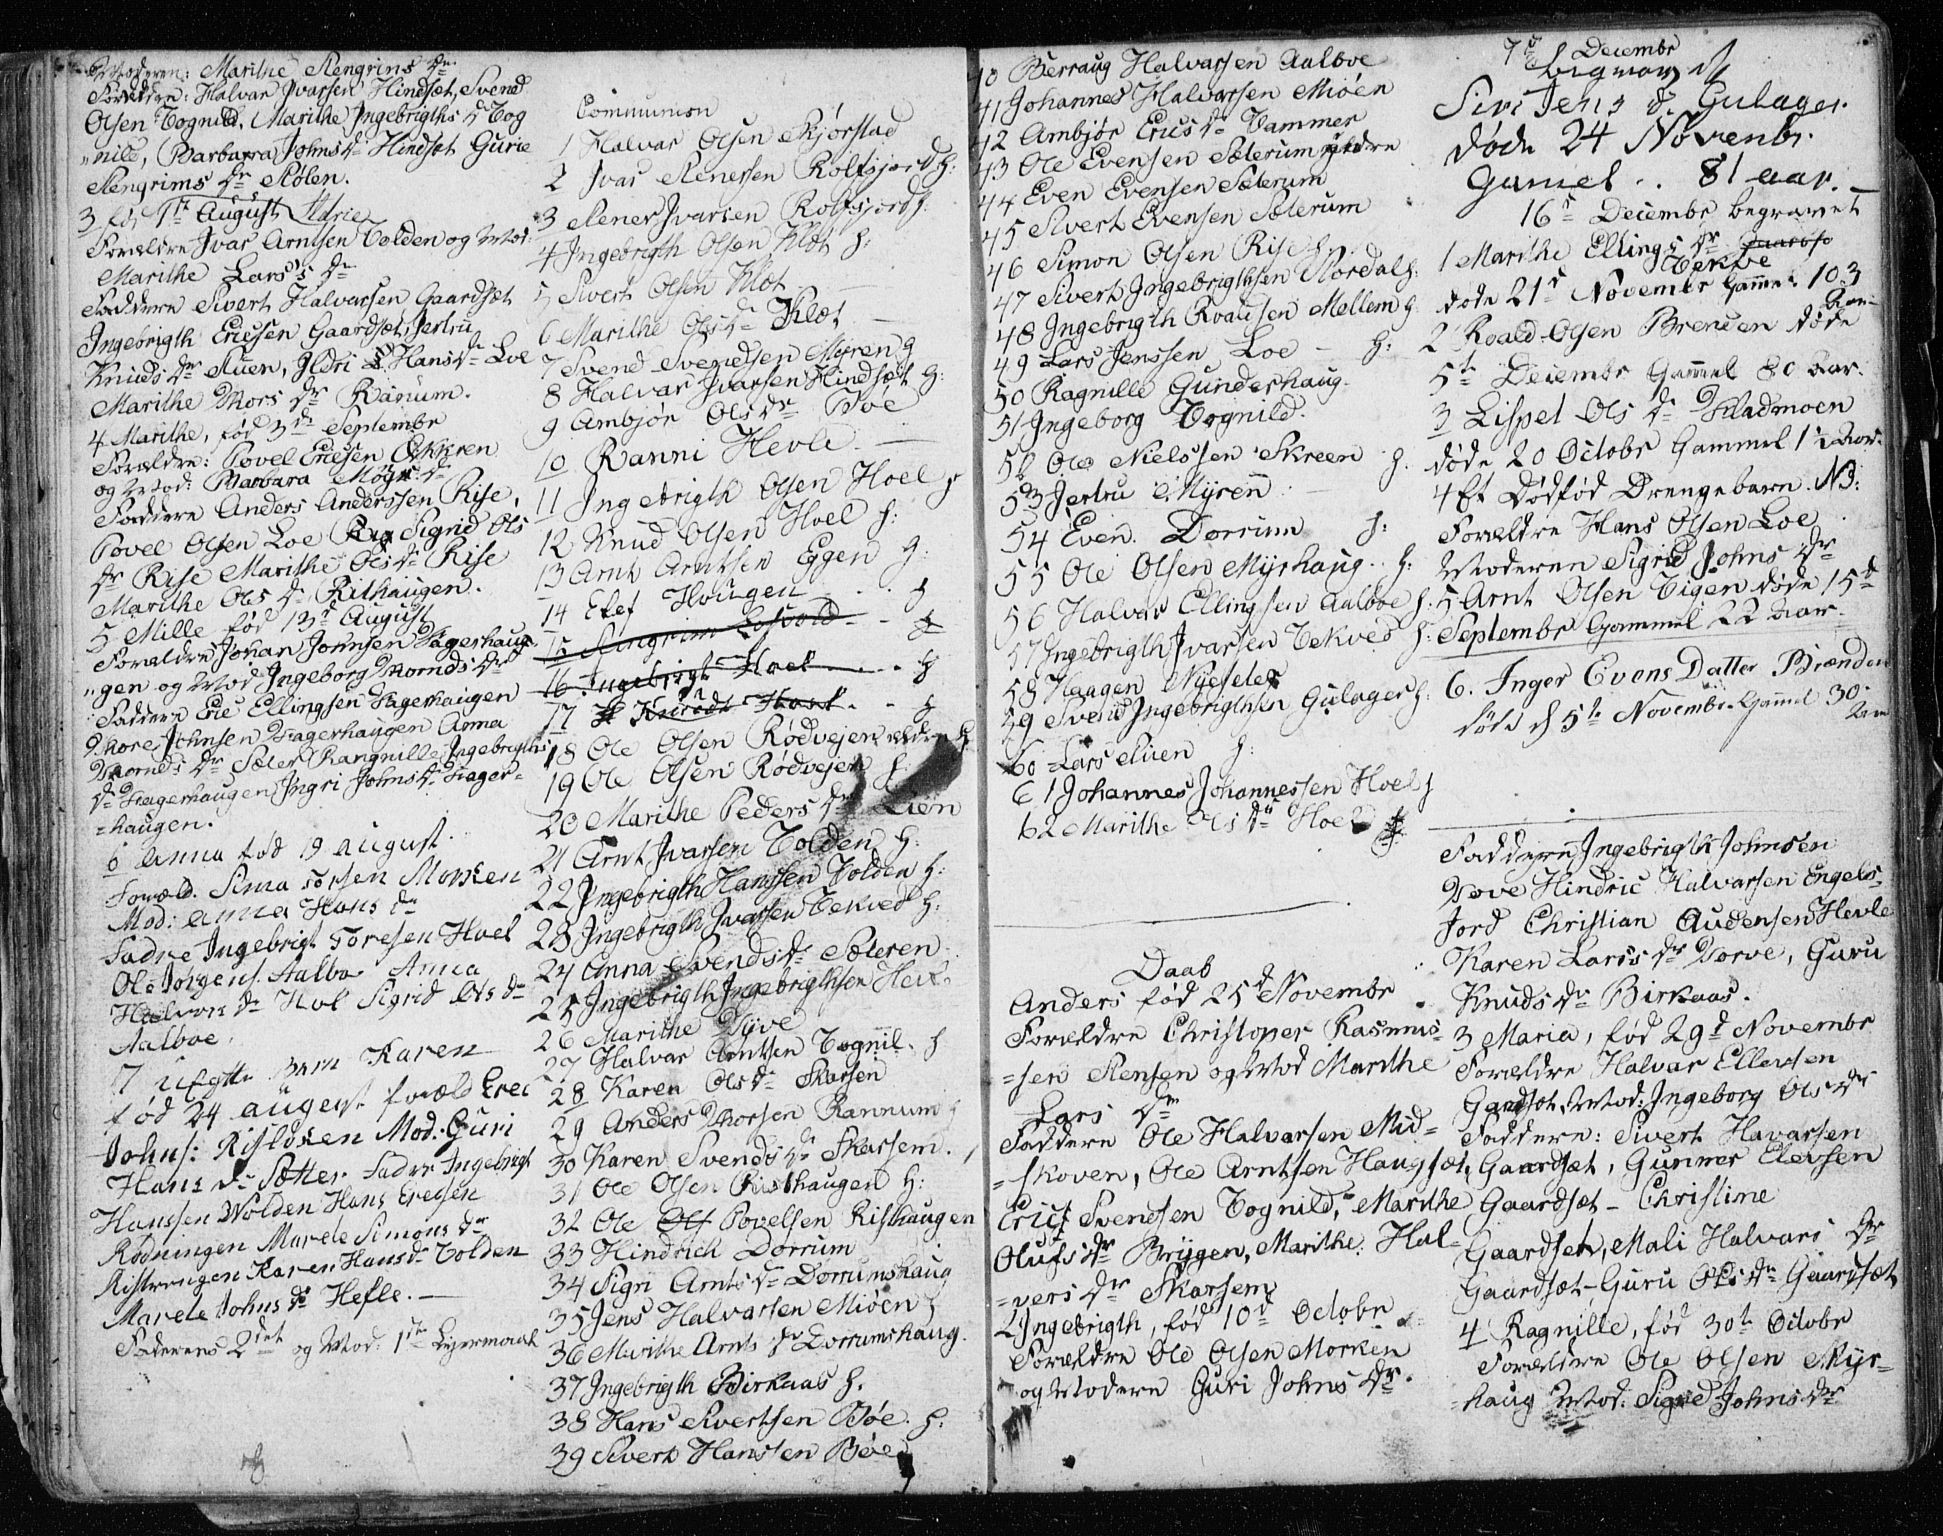 Moderen: Marithe Stengrims Dr
Forældre: Halvar Ivarsen Hindsæt, Svend
Olsen Tognild, Marithe Ingebrigths D Tog
"nild, Barbarra Johns Dr Hindsæt Gurie
Stengrims Dr Stølen.
3 fød 1st August
Forældre Ivar Arntsen Volden og Mod:
Marithe Lars's Dr
Faddere Sivert Halvarsen Gaardsæt
Ingebrigth Ericsen Gaardsæt, Jertru
Knuds Dr Stuen, Ildri Hans Dr Loe
Marithe Thors Dr Ranum.
4 Marithe, fød 3de Septembr
Forældre: Povel Ericsen
og Mod: Barbara
Faddere Anders Anderssen Rise,
Povel Olsen Loe Sigrid Ols
Dr Rise Marithe Ols Dr Rise
Marithe Ols Dr Risthaugen.
5 Mille fød 13d August
Forældre Johan Johnsen Hagerhau
"gen og Mod Ingeborg Dr
Faddere Eric Ellingsen Hagerhaugen
Thore Johnsen Hagerhaugen Anna
Dr Sæter Rangnille Ingebrigths
Dr Hagerhaugen, Ingri Johns Dr Hager=
=haugen.
6 Anna fød 19 August.
Foræld. Torsen Morken
Mod: Anna Hans Dr
Fadre Ingebrigt Toresen Hoel
Ole Jørgens. Aalboe Anna
Halvors Dr Hoel Sigrid Ols Dr
Aalboe.
7 Karen
fød 24 august foræld Erec
Johns: Mod: Guri
Hans Dr Sætter Fadre Ingebrigt
Hanssen Wolden Hans Eregsen
Rødningen Marete Simons Dr
Karen Hans Dr Volden
Marete Johns Dr Hefle. —
Faderens 2det og Mod: 1ste Leyermaal
Communion
1 Halvar Olsen Skjørstad
2 Ivar Stenersen Rolfsjord h:
3 Stener Ivarsen Rolfsjord h:
4 Ingebrigth Olsen Kløt h:
5 Sivert Olsen Kløt —
6 Marithe Ols Dr Kløt —
7 Svend Svendsen Myren h
8 Halvar Ivarsen Hindsæt h:
9 Ambjør Ols Dr Boe
10 Ranni Hevle —
11 Ingebrigth Olsen Hoel h
12 Knud Olsen Hoel h:
13 Arnt Arntsen Eggen h:
14 Elef Haugen . . . h
15 Stengrim - - h
16 Ingebrigt Hoel . . . h
17 Hoel . . h
18 Ole Olsen Rødvejen ældre h
19 Ole Olsen Rødvejen h:
20 Marithe Peders Dr Lien
21 Arnt Ivarsen Volden h:
22 Ingebrigth Hanssen Volden h:
23 Ingebrigth Ivarsen Tekved h:
24 Anna Svends Dr Sæteren
25 Ingebrigth Ingebrigthsen
26 Marithe
27 Halvar Arntsen Tognil. h
28 Karen Ols Dr Skarsem
29 Anders Thorsen Rannum h
30 Karen Svends Dr Skarsem.
31 Ole Olsen Risthaugen h:
32 Ole Povelsen Risthaugen
33 Hindrich Dorrum
34 Sigri Arnts Dr Dorrumshaug
35 Jens Halvarsen Miøen h
36 Marithe Arnts Dr Dorrumshaug.
37 Ingebrigth Birkaas h.
38 Hans Sivertsen Bøe. h:
39 Sivert Hanssen Bøe
40 Berraug Halvarsen Aalboe
41 Johannes Halvarsen Miøen
42 Ambjør Erics Dr Vammer
43 Ole Evensen Sæterum yldre
44 Even Evensen Sæterum
45 Sivert Evensen Sæterum
46 Simon Olsen Rise h:
47 Sivert Ingebrigthsen Nordal h:
48 Ingebrigth Roaldsen Mellem h
49 Lars Jenssen Loe — h:
50 Ragnille Gunderhaug.
51 Ingeborg Tognild.
52 Ole Nielssen Skreen h.
53 Jertru Myren —
54 Even Dorrum h:
55 Ole Olsen Myrhaug . . h:
56 Halvar Ellingsen Aalboe h:
57 Ingebrigth Ivarsen Tekved h:
58 Haagen
59 Svend Ingebrigthsen Gulager h:
60 Lars Stuen h:
61 Johannes Johannessen Hoel h
62 Marithe Ols Dr Hoel
Daab
Anders fød 25d Novembr
Forældre Christoper Rasmus=
=sen Stensen og Mod Marithe
Lars Dr
Faddere Ole Halvarsen Mid=
=skoven, Ole Arntsen Haugsæt,
Erich Svendsen Tognild, Marithe
Olufs Dr Bryggen, Marithe Hal=
=vers Dr Skarsem
2 Ingebrigth, fød 10d Octobr
Forældre Ole Olsen Morken
og Modere Guri Johns Dr.
7d Decembr
begraven
Siri Jens D. Gulager
døde 24 Novembr.
Gamel . . 81 aar. —
16d Decembr begravet
1 Marithe Ellings Dr
Tekve
døde 21d Novembr Gammel 103
Aar
2 Roald Olsen Brenden døde
5te Decembr Gammel 80 Aar.
3 Lispet Ols Dr Fladmoen
døde 20 Octobr Gammel 1½ Aar.
4 Et Dødfød Drengebarn. NB:
Forældre Hans Olsen Loe
Moderen Sigrid Johns Dr
5 Arnt Olsen Vigen døde 15d
Septembr Gammel 22 Aar.
6. Inger Evens Datter Brænden
døde d 5te Novembr. Gamel 30
Aar
Faddere Ingebrigth Johnsen
Hove Hindric Halvarsen Engels=
Jord Christian Audensen Hevle
Karen Lars's Dr Horve, Guru
Knuds Dr Birkaas.
3 Maria, fød 29d Novembr
Forældre Halvar Ellevsen
Gardsæt Mod: Ingeborg Ols Dr
Faddere: Sivert Havarsen
Gaardsæt, Gunner Elevsen
Gaardsæt – Christine
Gaardset, Mali Halvars Dr
Gaardsæt – Guru Ols Dr Gaardsæt
4 Ragnille, fød 30te Octobr
Forældre Ole Olsen Myr=
=haug Mod: Sigrid Johns Dr